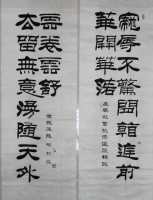 寵辱不驚閒看庭前
華開華落
去留無意漫隨天外
雲卷雲舒